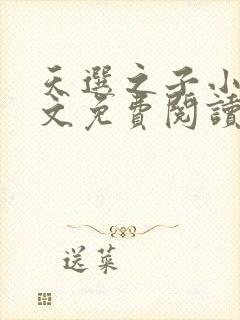 天選之子小
文免費閱讀
送菜